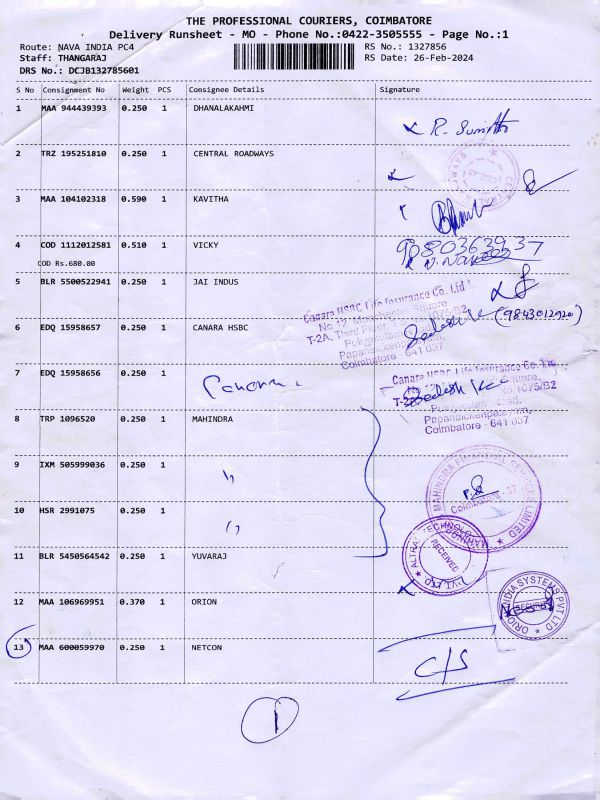 THE PROFESSIONAL COURIERS, COIMBATORE
Delivery Runsheet - MO - Phone No.:0422-3505555 - Page No.:1
Route: NAVA INDIA PC4 RS No.: 1327856
Staff: THANGARAJ RS Date: 26-Feb-2024
DRS No.: DCJB132785601
S No Consignment No Weight PCS Consignee Details Signature
1 MAA 944439393 0.250 1 DHANALAKAHMI
2 TRZ 195251810 0.250 1 CENTRAL ROADWAYS
3 MAA 104102318 0.590 1 KAVITHA
4 COD 1112012581 0.510 1 VICKY 9880363937
COD Rs.680.00
5 BLR 5500522941 0.250 1 JAI INDUS
Canara HSBC Life Insurance Co. Ltd
6 EDQ 15958657 0.250 1 CANARA HSBC (9843012920)
Papanaickenpalayam,
Coimbatore - 641 037
7 EDQ 15958656 0.250 1 Canara
Canara HSBC Life Insurance Co. Ltd.
8 TRP 1096520 0.250 1 MAHINDRA
Papanaickenpalayam,
Coimbatore - 641 037
9 IXM 505999036 0.250 1 "
MAHINDRA FINANCIAL SERVICES LIMITED
Coimbatore - 37
10 HSR 2991075 0.250 1 "
RECEIVED
11 BLR 5450564542 0.250 1 YUVARAJ
12 MAA 106969951 0.370 1 ORION
ORION INDIA SYSTEMS PVT LTD
13 MAA 600059970 0.250 1 NETCON C/S
1